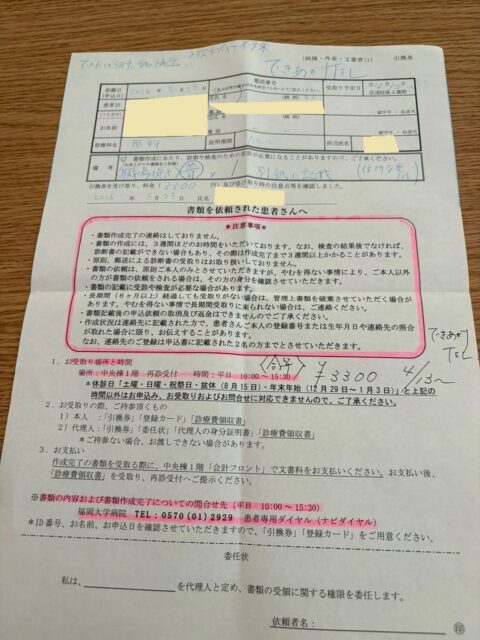 (病棟・外来・文書窓口)
引換券
できあがりTEL
依頼日
(申込日)
電話番号
受取り予定日
患者ID
お名前
診療科名
証明期間
担当医名
備考
書類作成にあたり、診療や検査のための受診が必要になることがありますので、ご了承ください。
別紙に記載
引換券を受け取り、料金(3300円)及び受け取り時の注意点等を確認しました。
書類を依頼された患者さんへ
*注意事項*
・書類作成完了の連絡はしておりません。
・書類の作成には、3週間ほどのお時間をいただいております。なお、検査の結果後でなければ、
診断書の記載ができない場合もあり、その際は作成完了まで3週間以上かかることがあります。
・原則、郵送による診断書の受取りはお取り扱いしておりません。
・書類の依頼は、原則ご本人のみとさせていただきますが、やむを得ない事情により、ご本人以外
の方が書類の依頼をされる場合は、その方の身分を確認させていただきます。
・書類の記載に受診や検査が必要な場合があります。
・長期間(6ヶ月以上)経過しても受取りがない場合は、管理上書類を破棄させていただく場合が
あります。やむを得ない事情で長期間受取りに来られない場合は、ご連絡ください。
・書類記載後の申込依頼の取消及び返金はできませんのでご了承ください。
・作成状況は連絡先に記載された方で、患者さんご本人の登録番号または生年月日や連絡先の照合
が取れた場合に限り、お伝えすることがあります。
なお、連絡先のご登録は申込書に記載された2名の方までとさせていただきます。
できあがり
TEL
1. お受取り場所と時間
場所:中央棟1階 再診受付 時間:平日 10:00~15:30
¥3300
4/13~
*休診日「土曜・日曜・祝祭日・盆休(8月15日)・年末年始(12月29日~1月3日)」と上記の
時間以外はお申込み、お受取りおよびお問合せに対応できませんので、ご了承ください。
2. お受取りの際、ご持参頂くもの
1)本人 :「引換券」「登録カード」「診療費領収書」
2)代理人:「引換券」「委任状」「代理人の身分証明書」「診療費領収書」
*ご持参ない場合、お渡しできない場合があります。
3. お支払い
作成完了の書類を受取る際に、中央棟1階「会計フロント」で文書料をお支払いください。お支払い後、
「診療費領収書」を受取り、再診受付へご提示ください。
※書類の内容および書類作成完了についての問合せ先(平日 10:00~15:30)
福岡大学病院 TEL:0570(01)2929 患者専用ダイヤル(ナビダイヤル)
*ID番号、お名前、お申込日を確認させていただきますので、「引換券」「登録カード」をご用意ください。
委任状
私は、を代理人と定め、書類の受領に関する権限を委任します。
依頼者名:
印